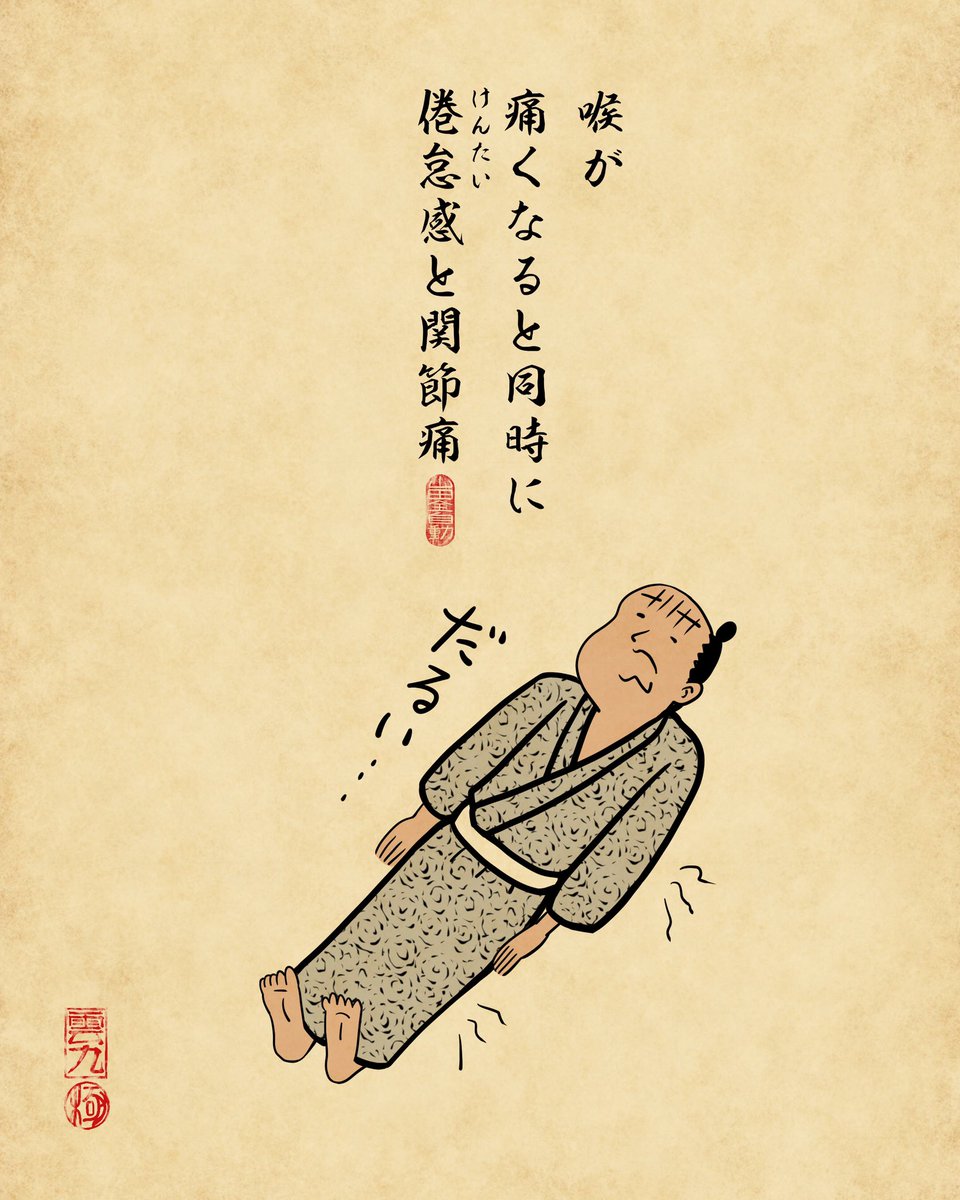 喉が
痛くなると同時に
けんたい
倦怠感と関節痛
だるい…